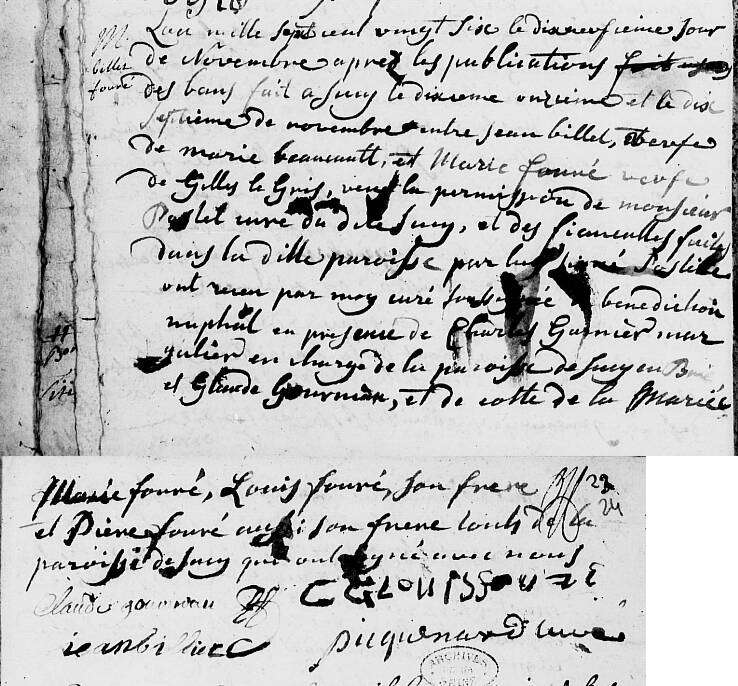 M.
billet
fouré
L'an mille sept cent vingt six le dixneufieme jour
de Novembre apres les publications fait
des bans fait a Sucy le dixieme onzieme et le dix
septieme de novembre entre jean billet, veufe
de marie beaucault, et Marie fouré veufe
de Gilles le Gris, veue la permission de monsieur
curé du dit Sucy, et des fiancalles faites
dans la ditte paroisse par
ont receu par moy curé soubsigné benediction
nuptial en presence de Charles Garnier mar
gulier en charge de la paroisse de Sucy en Brie
et Glaude Gourman, et de cotté de la Mariée
Marie fouré, Louis fouré, son frere 23
24
et Piere fouré aussi son frere touts de la
paroisse de Sucy qui ont signé avec nous
Claude gourman CG LOUIS FOURE
jean billiet picquenard curé
ARCHIVES